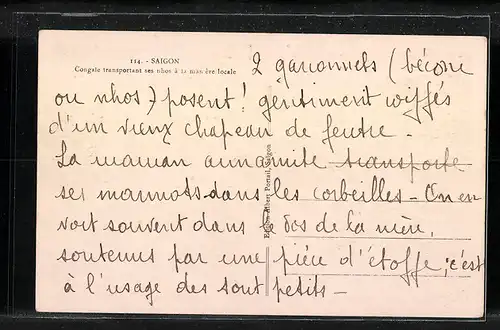 114. - SAIGON
Congaïe transportant ses nhos à la manière locale
2 garçonnets (bécons
ou nhos) posent! gentiment coiffés
d'un vieux chapeau de feutre.
La maman annamite transporte
ses marmots dans les corbeilles - On en
voit souvent dans le dos de la mère,
soutenus par une pièce d'étoffe; c'est
à l'usage des tout petits -
Edition Albert Portail, Saigon